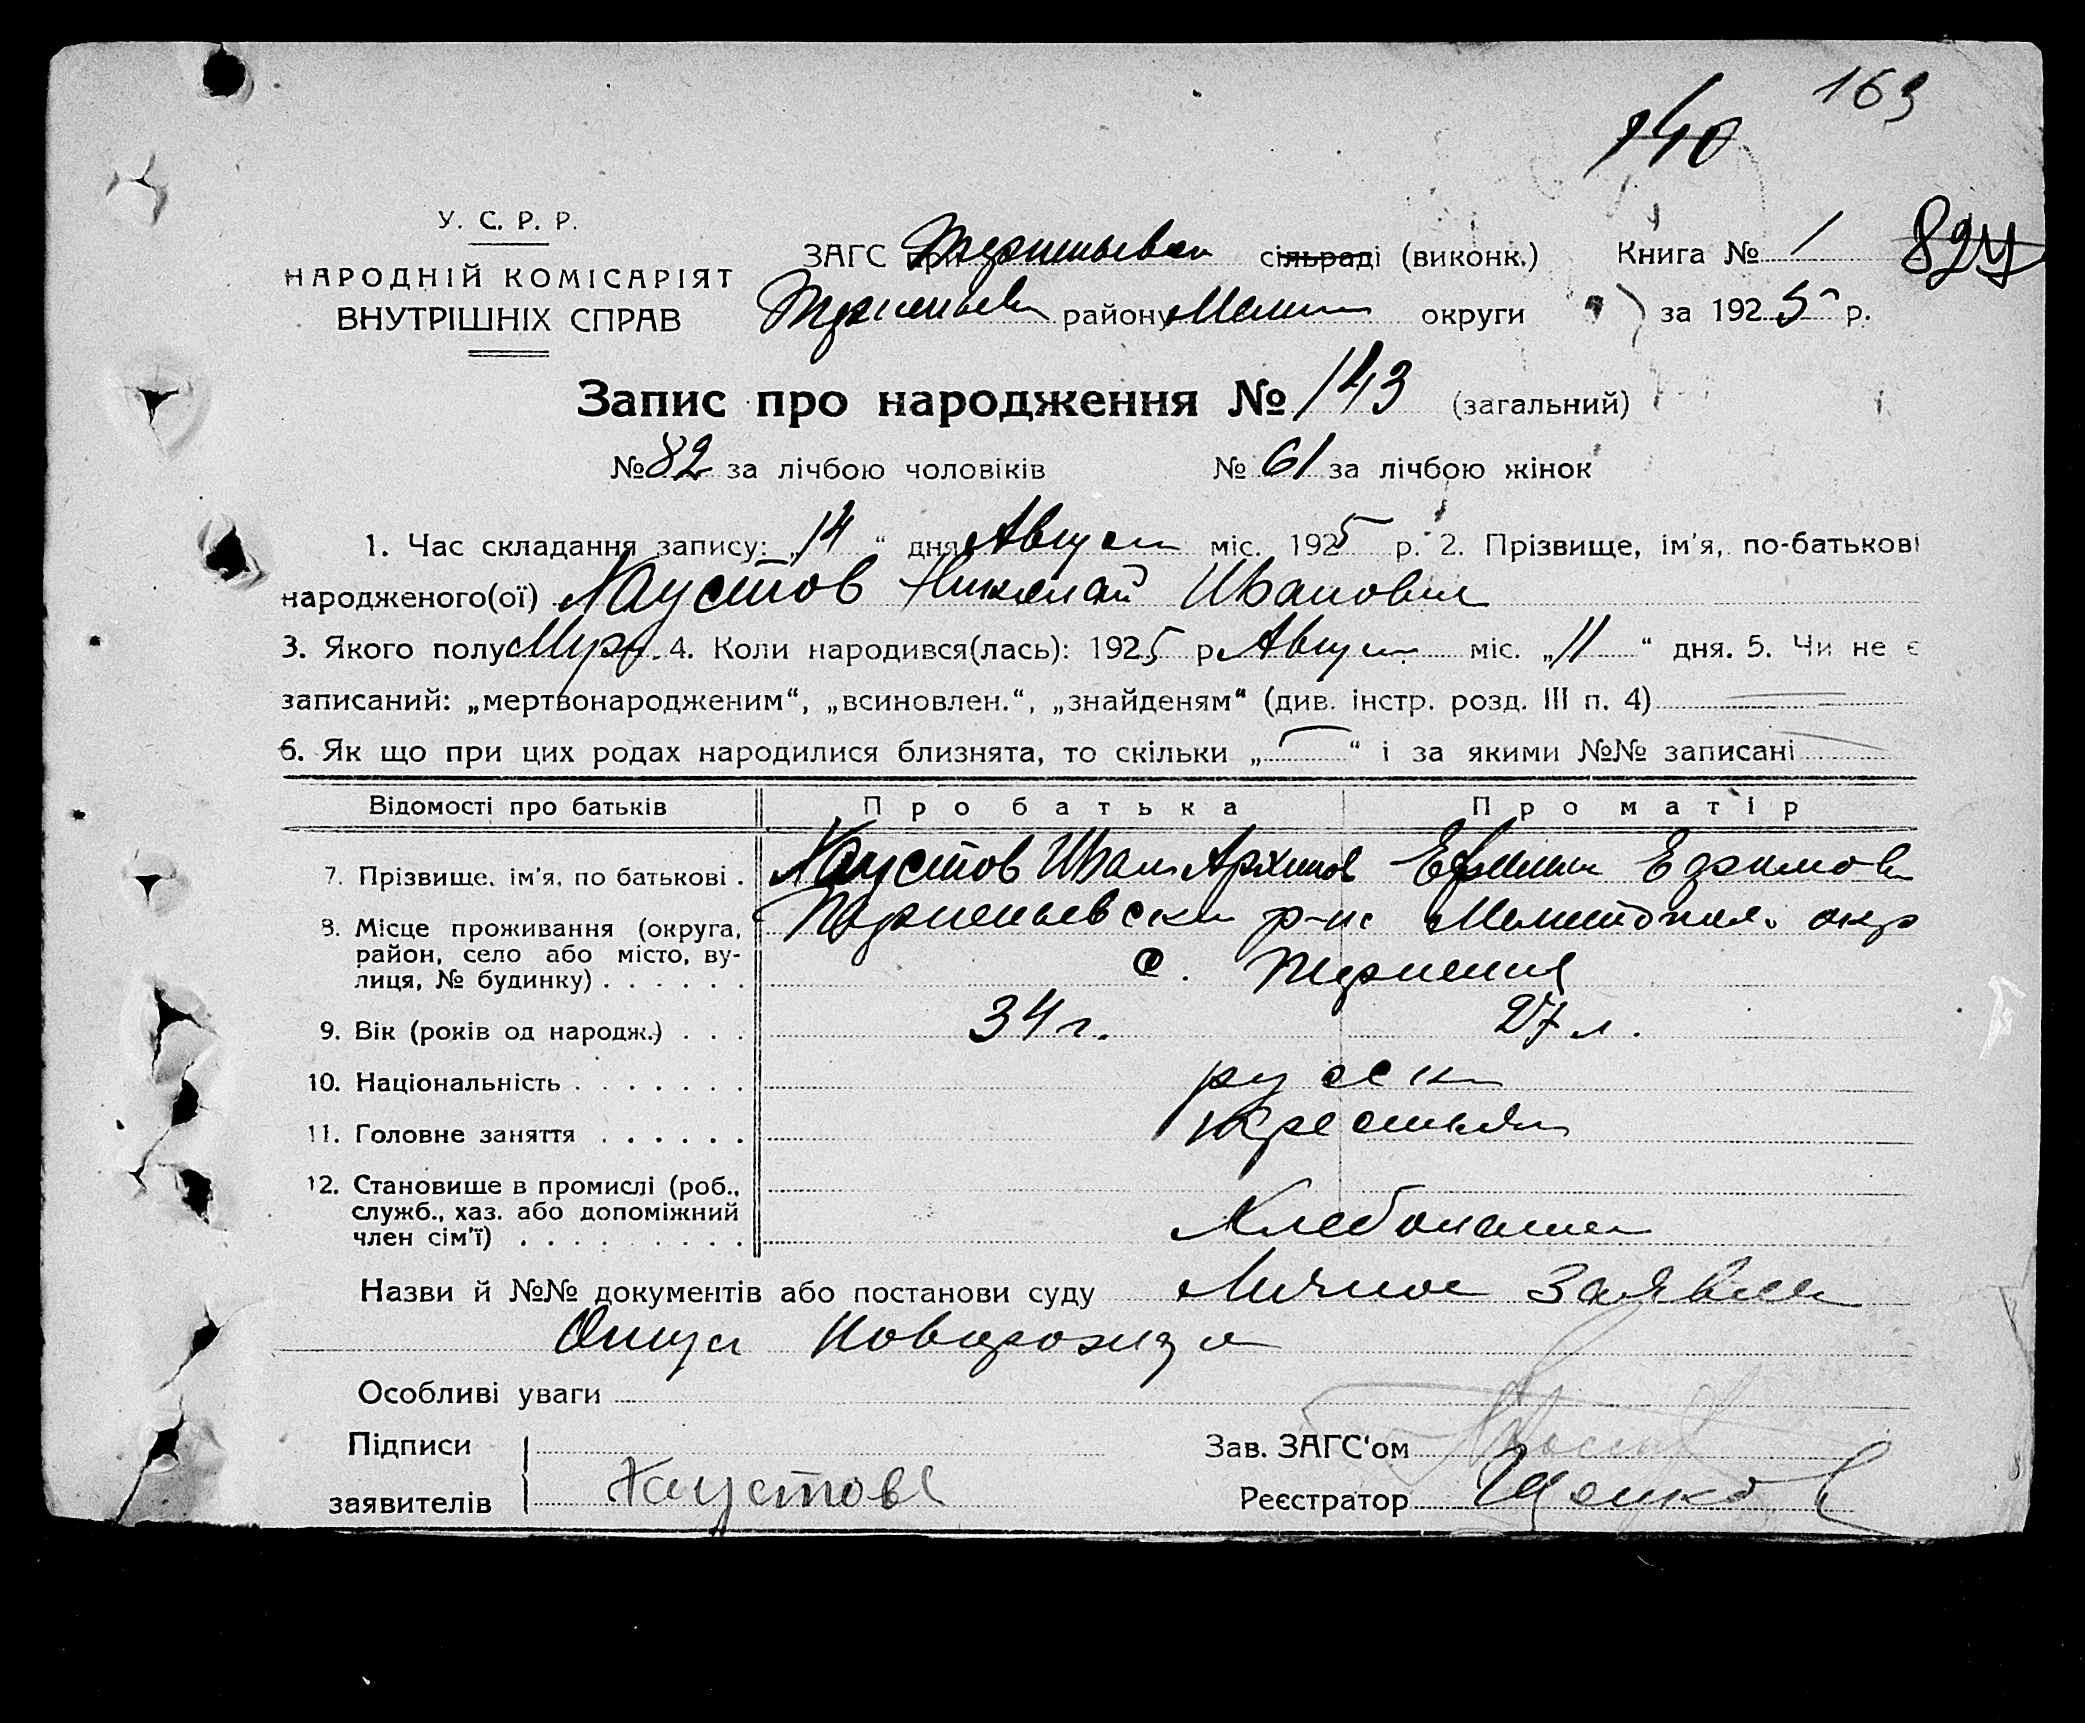 163
140
У. С. Р. Р.
НАРОДНІЙ КОМІСАРІЯТ
ВНУТРІШНІХ СПРАВ
ЗАГС при сільраді (виконк.) Книга № 1 82
району округи за 1925 р.
Запис про народження № 143 (загальний)
№ 82 за лічбою чоловіків № 61 за лічбою жінок
1. Час складання запису: „14“ дня Август міс. 1925 р. 2. Прізвище, ім'я, по-батькові
народженого(ої) Хаустов Николай Иванович
3. Якого полу Муж. 4. Коли народився(лась): 1925 р Август міс. „11“ дня. 5. Чи не є
записаний: „мертвонародженим“, „всиновлен.“, „знайденям“ (див. інстр. розд. III п. 4)
6. Як що при цих родах народилися близнята, то скільки „ “ і за якими №№ записані
Відомості про батьків Про батька Про матір
7. Прізвище, ім'я, по батькові . Хаустов Иван Архипов Ефимов
8. Місце проживання (округа, р-н Мелитопол. окр
район, село або місто, ву- с.
лиця, № будинку) . . . . . .
9. Вік (років од народж.) . . . 34 г. 27 л.
10. Національність . . . . . . . русск
11. Головне заняття . . . . . . крестьян
12. Становище в промислі (роб.,
служб., хаз. або допоміжний Хлебопашец
член сім'ї) . . . . . . . . .
Назви й №№ документів або постанови суду Личное заявлен
Отца новорожд
Особливі уваги
Підписи Зав. ЗАГС'ом
заявителів Хаустовъ Реєстратор